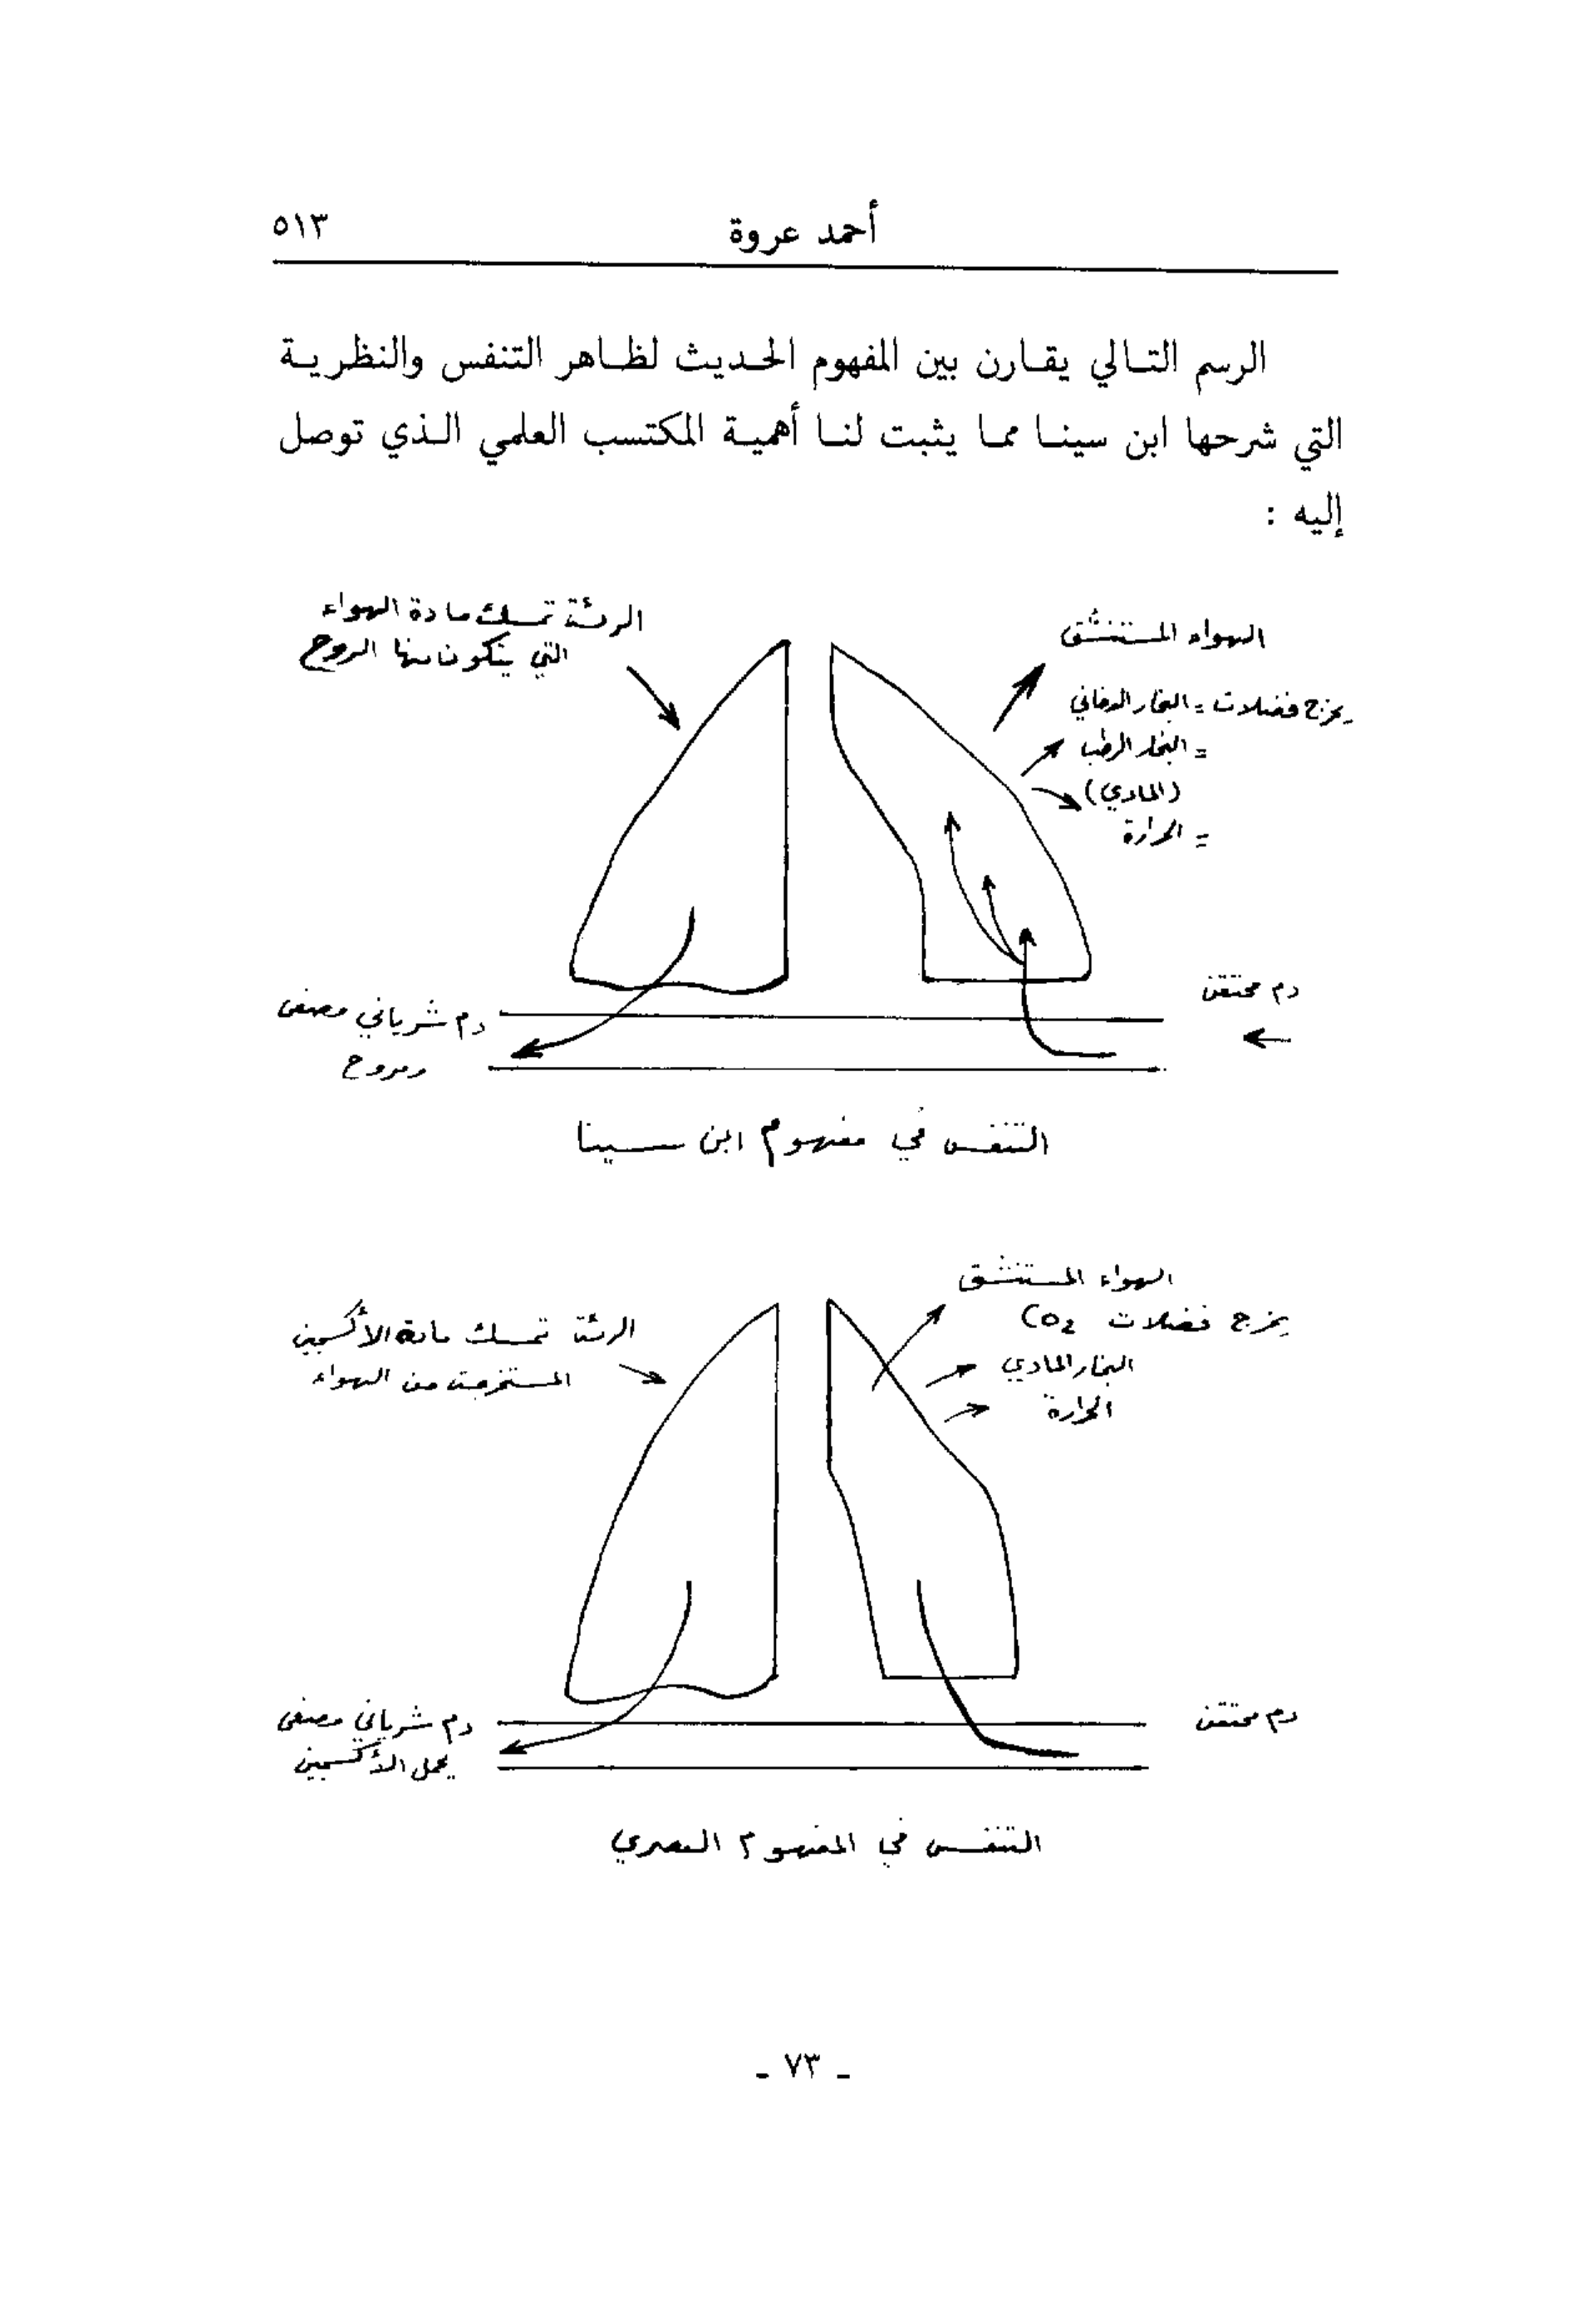 أحمد عروة
٥١٣
الرسم التالي يقارن بين المفهوم الحديث لظاهر التنفس والنظرية
التي شرحها ابن سينا مما يثبت لنا أهمية المكتسب العلمي الذي توصل
إليه :
الهواء المستنشق
يخرج فضلات = البخار الدخاني
= البخار الرطب
(المادي)
= الحرارة
الرئة تمسك مادة الهواء
التي يتكون منها الروح
دم محتقن
دم شرياني مصفى
ومروح
التنفس في مفهوم ابن سينا
الهواء المستنشق
يخرج فضلات CO2
البخار المادي
الحرارة
الرئة تمسك مادة الأكسجين
المستخرجة من الهواء
دم محتقن
دم شرياني مصفى
يحمل الأكسجين
التنفس في المفهوم العصري
- ٧٣ -